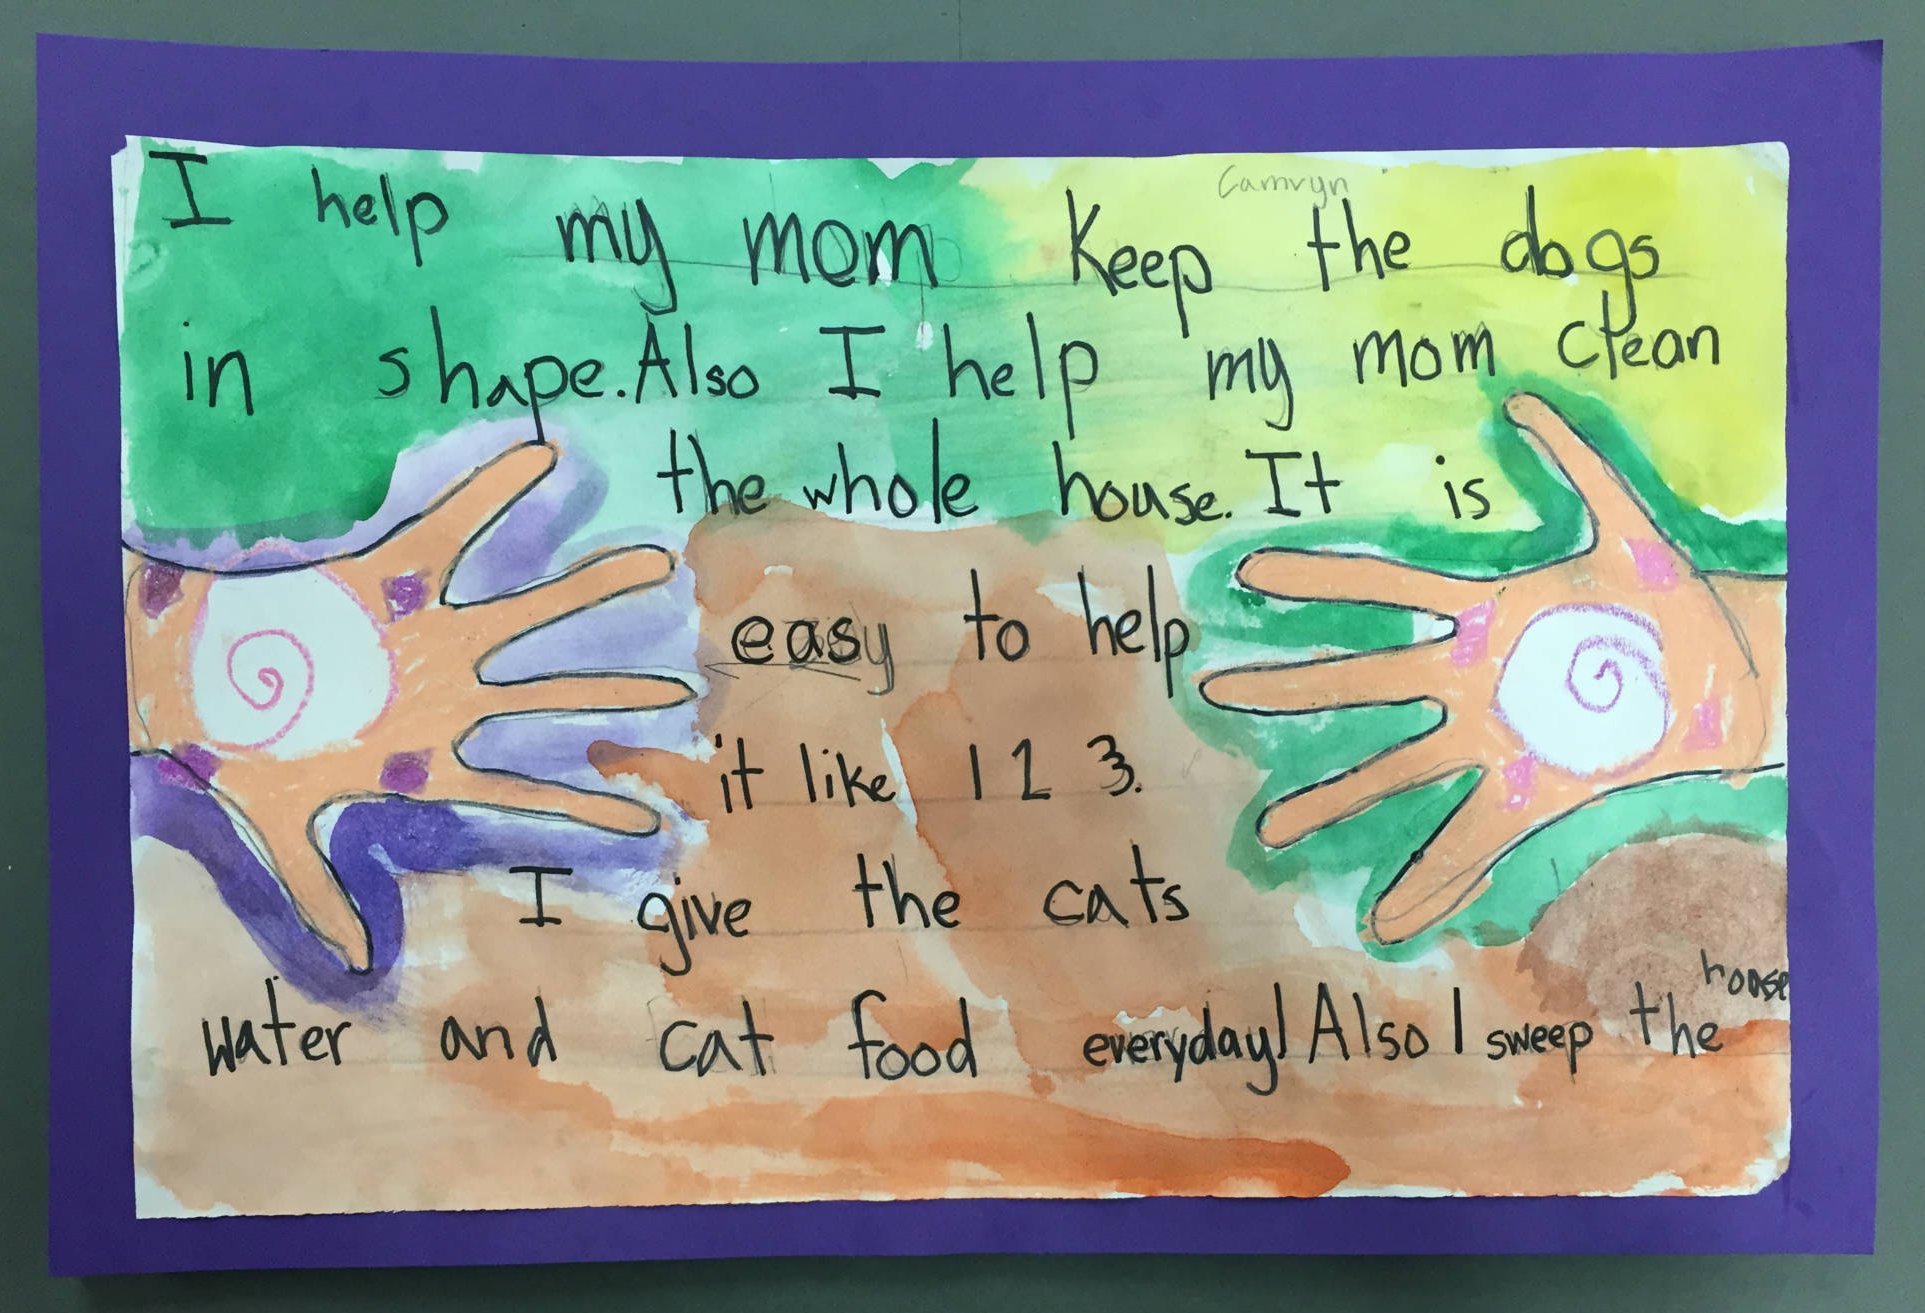 Camryn
I help my mom keep the dogs
in shape. Also I help my mom clean
the whole house. It is
easy to help
it like 1 2 3.
I give the cats
water and cat food everyday! Also I sweep the house